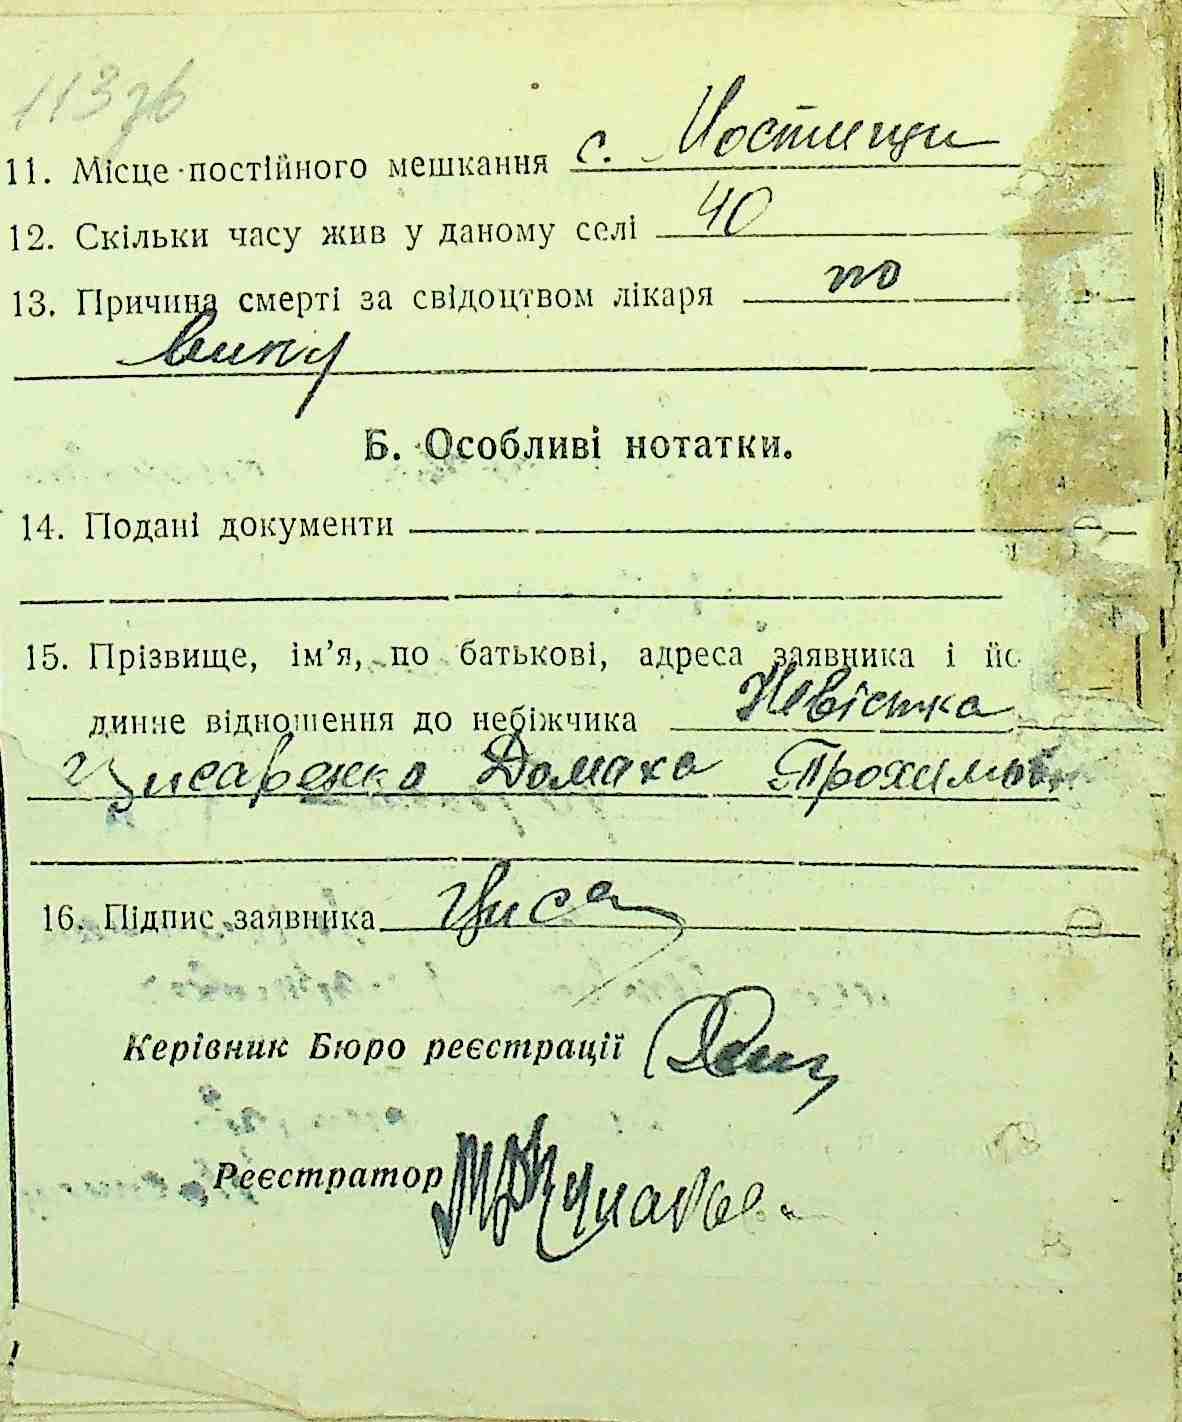 113зв
11. Місце постійного мешкання с. Мостищи
12. Скільки часу жив у даному селі 40
13. Причина смерті за свідоцтвом лікаря по
віку
Б. Особливі нотатки.
14. Подані документи
15. Прізвище, ім'я, по батькові, адреса заявника і йо
динне відношення до небіжчика Невістка
Цисаренко Домаха Прохимовн
16. Підпис заявника Циса
Керівник Бюро реєстрації
Реєстратор